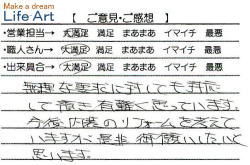 Make a dream
Life Art 【 ご意見・ご感想 】
・営業担当→ 大満足 満足 まあまあ イマイチ 最悪
・職人さん→ 大満足 満足 まあまあ イマイチ 最悪
・出来具合→ 大満足 満足 まあまあ イマイチ 最悪
無理な要求に対しても対応
して頂き有難く思っています。
今後内階のリフォームを考えて
いますが是非御願いしたいと
思います。